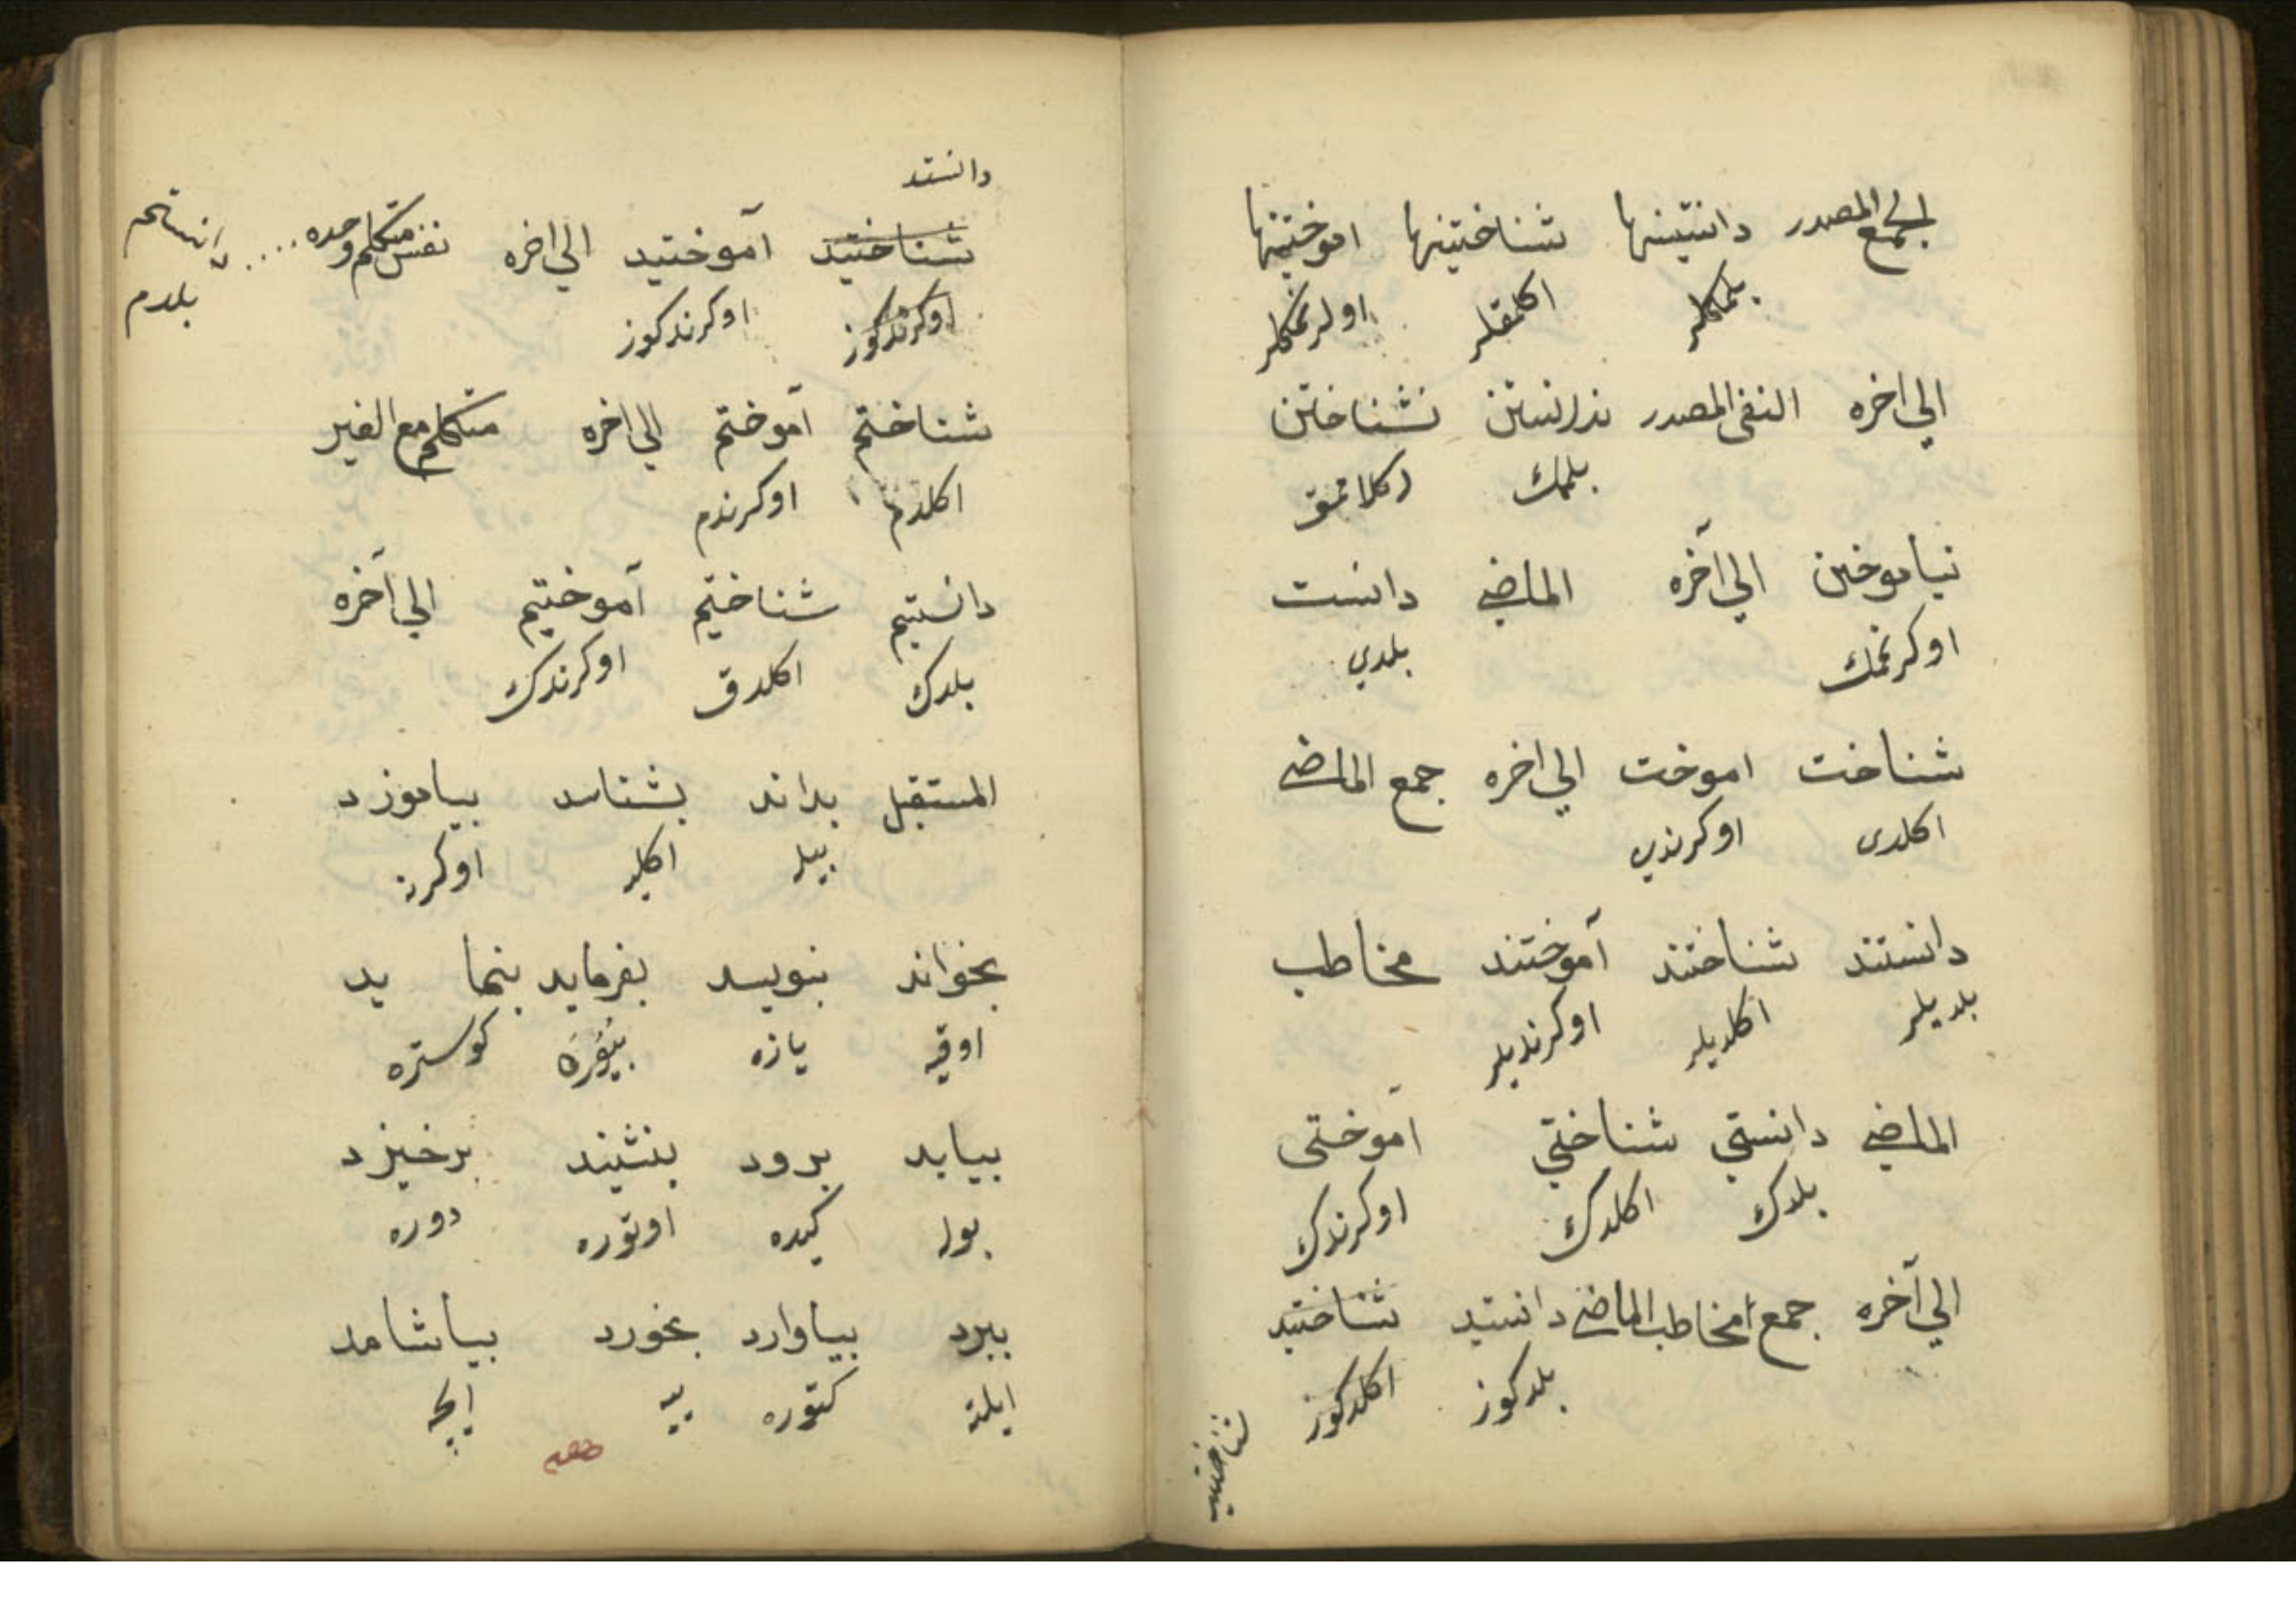 الجمع المصدر دانستنها شناختنها اموختنها
بلمكلر اكلمقلر اوكرنمكلر
الي اخره النفى المصدر ندانستن نشناختن
بلمك اكلامق
نياموختن الي آخره الماضي دانست
اوكرنمك بلدي
شناخت اموخت الي اخره جمع الماضي
اكلدى اوكرندي
دانستند شناختند آموختند مخاطب
بلديلر اكلديلر اوكرنديلر
الماضي دانستي شناختي آموختى
بلدك اكلدك اوكرندك
الي آخره جمع امخاطب الماضي دانستيد شناختيد
بلدكوز اكلدكوز
دانستند
شناختيد آموختيد الي اخره نفس متكلم وحده
اوكرندكوز اوكرندكوز بلدم
شناختم آموختم الي اخره متكلم مع الغير
اكلدم اوكرندم
دانستيم شناختيم آموختيم الي آخره
بلدك اكلدق اوكرندك
المستقبل بداند بشناسد بياموزد
بيله اكليه اوكرنه
بخواند بنويسد بفرمايد بنما يد
اوقيه يازه بيوره كوستره
بيابد برود بنشيند برخيزد
بوله كيده اوتوره دوره
ببرد بياوارد بخورد بياشامد
ايلته كتوره ييه ايچه